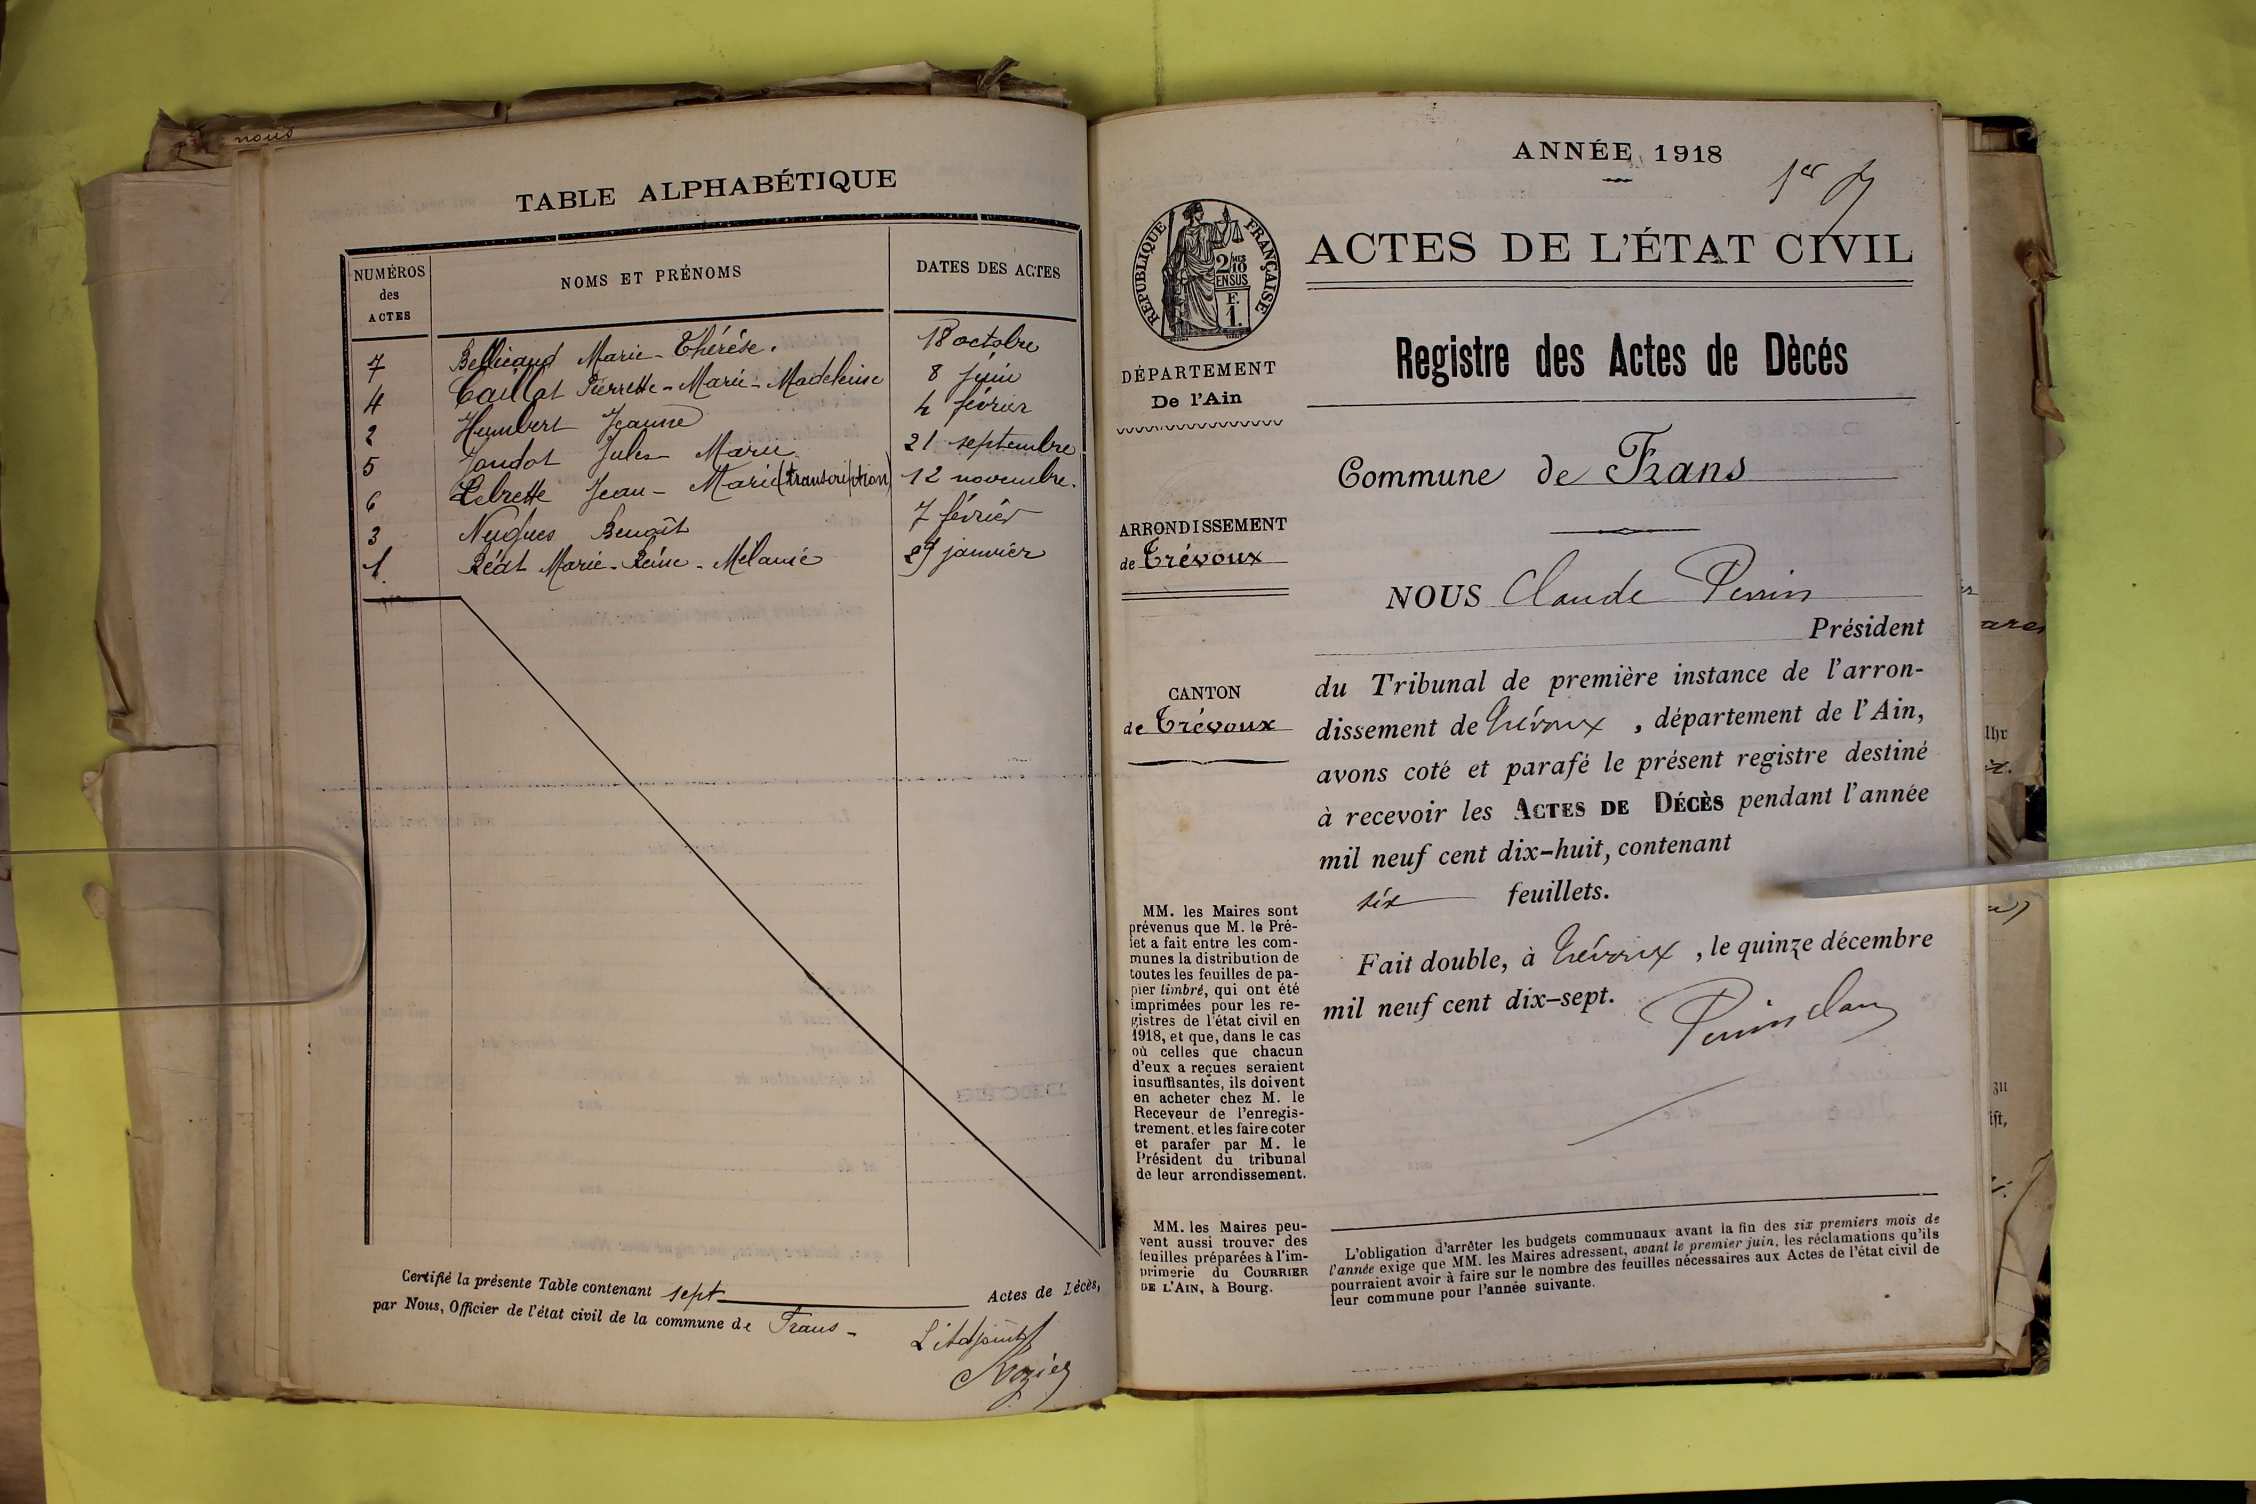 nous
TABLE ALPHABÉTIQUE
NUMÉROS
des
ACTES
NOMS ET PRÉNOMS
DATES DES ACTES
7 Bellicand Marie-Thérèse. 18 octobre
4 Caillat Pierrette-Marie-Madeleine 8 juin
2 Humbert Jeanne 4 février
5 Jandot Jules Marie 21 septembre
6 Lebrette Jean-Marie (transcription) 12 novembre.
3 Nugues Benoît 7 février
1. Réat Marie-Reine-Mélanie 29 janvier
Certifié la présente Table contenant sept Actes de Décès,
par Nous, Officier de l'état civil de la commune de Frans-
L'Adjoint
ANNÉE 1918
1er
RÉPUBLIQUE FRANÇAISE
2/10
EN SUS
F.
1.
DÉPARTEMENT
De l'Ain
ARRONDISSEMENT
de Trévoux
CANTON
de Trévoux
MM. les Maires sont
prévenus que M. le Pré-
fet a fait entre les com-
munes la distribution de
toutes les feuilles de pa-
pier timbré, qui ont été
imprimées pour les re-
gistres de l'état civil en
1918, et que, dans le cas
où celles que chacun
d'eux a reçues seraient
insuffisantes, ils doivent
en acheter chez M. le
Receveur de l'enregis-
trement. et les faire coter
et parafer par M. le
Président du tribunal
de leur arrondissement.
MM. les Maires peu-
vent aussi trouver des
feuilles préparées à l'im-
primerie du COURRIER
DE L'AIN, à Bourg.
ACTES DE L'ÉTAT CIVIL
Registre des Actes de Dècés
Commune de Frans
NOUS Claude Perrin
Président
du Tribunal de première instance de l'arron-
dissement de Trévoux, département de l'Ain,
avons coté et parafé le présent registre destiné
à recevoir les ACTES DE DÉCÈS pendant l'année
mil neuf cent dix-huit, contenant
six feuillets.
Fait double, à Trévoux, le quinze décembre
mil neuf cent dix-sept.
L'obligation d'arrêter les budgets communaux avant la fin des six premiers mois de
l'année exige que MM. les Maires adressent, avant le premier juin. les réclamations qu'ils
pourraient avoir à faire sur le nombre des feuilles nécessaires aux Actes de l'état civil de
leur commune pour l'année suivante.